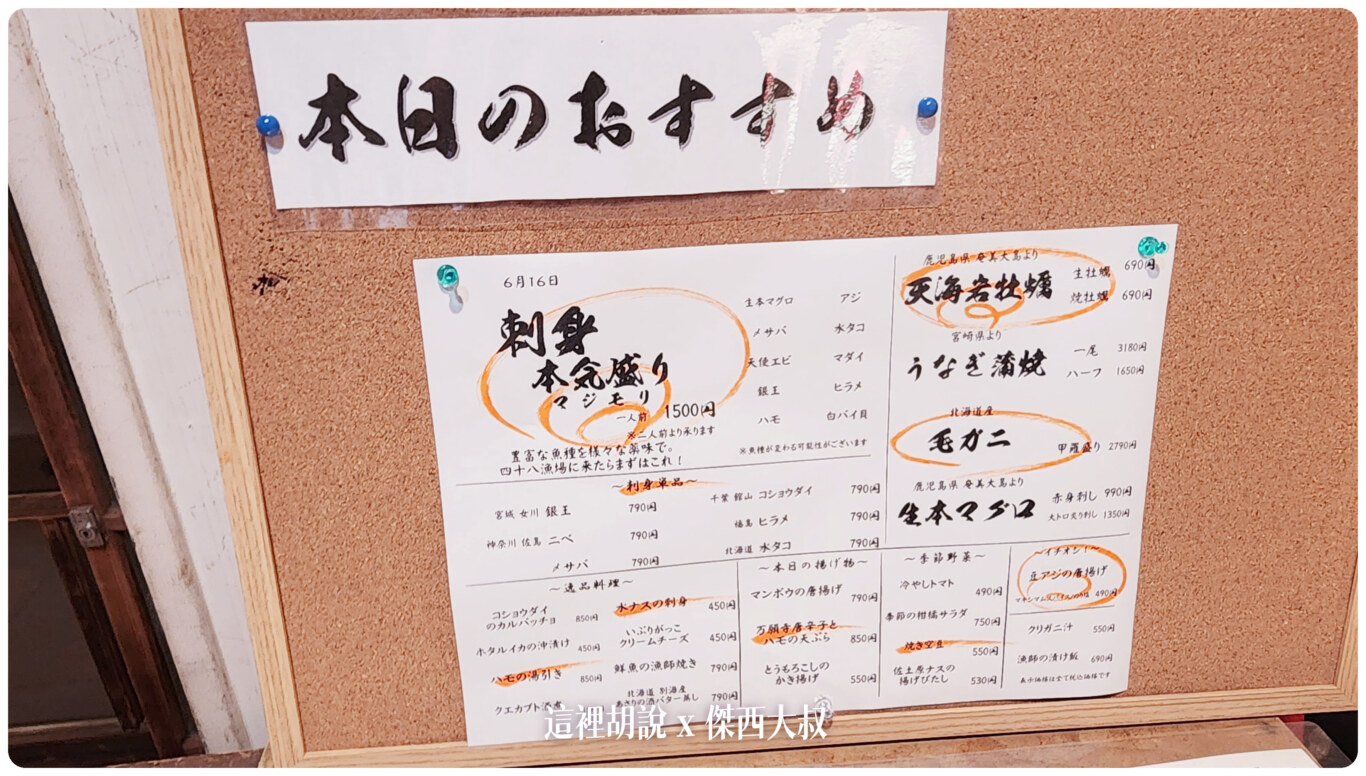 本日のおすすめ
6月16日
刺身
本気盛り
マジモリ
一人前 1500円
※二人前より承ります
豊富な魚種を様々な薬味で。
四十八漁場に来たらまずはこれ!
生本マグロ アジ
メサバ 水タコ
天使エビ マダイ
銀王 ヒラメ
ハモ 白バイ貝
※魚種が変わる可能性がございます
~刺身単品~
宮城 女川 銀王 790円
神奈川 佐島 ニベ 790円
メサバ 790円
千葉 館山 コショウダイ 790円
福島 ヒラメ 790円
北海道 水タコ 790円
鹿児島県 奄美大島より
天海岩牡蠣
生牡蠣 690円
焼牡蠣 690円
宮崎県より
うなぎ蒲焼
一尾 3180円
ハーフ 1650円
北海道産
毛ガニ
甲羅盛り 2790円
鹿児島県 奄美大島より
生本マグロ
赤身刺し 990円
大トロ炙り刺し 1350円
~逸品料理~
コショウダイ
のカルパッチョ 850円
ホタルイカの沖漬け 450円
ハモの湯引き 850円
クエカブト酒煮
水ナスの刺身 450円
いぶりがっこ
クリームチーズ 450円
鮮魚の漁師焼き 790円
北海道 別海産
あさりの酒バター蒸し 790円
~本日の揚げ物~
マンボウの唐揚げ 790円
万願寺唐辛子と
ハモの天ぷら 850円
とうもろこしの
かき揚げ 550円
~季節野菜~
冷やしトマト 490円
季節の柑橘サラダ 750円
焼き空豆 550円
佐土原ナスの
揚げびたし 530円
~イチオシ!~
豆アジの唐揚げ
490円
クリガニ汁 550円
漁師の漬け飯 690円
表示価格は全て税込価格です
這裡胡說 x 傑西大叔